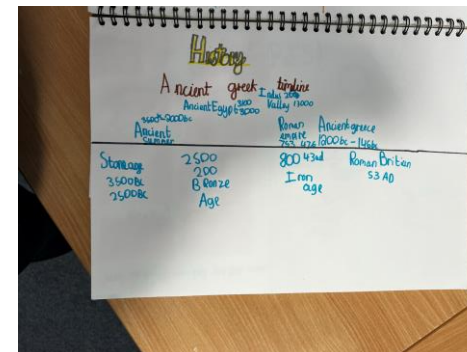 History
Ancient greek timeline
Ancient Egypt 3100
3000
Indus
Valley
Ancient
Summer
Roman
empire
Ancient greece
1200bc - 146bc
Stoneage
3500BC
2500BC
2500
200
BRonze
Age
800 43ad
Iron
age
Roman Britian
53 AD